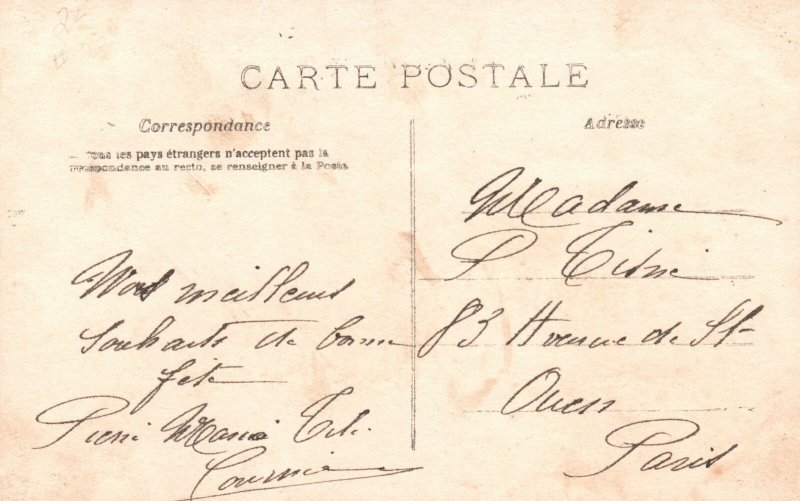 2-
CARTE POSTALE
Correspondance
Tous les pays étrangers n'acceptent pas la
respondance au recto, se renseigner à la Poste
Nos meilleurs
souhaits de bonne
fête
Pierre Marie
Adresse
Madame
P Tisné
83 Avenue de St-
Ouen
Paris